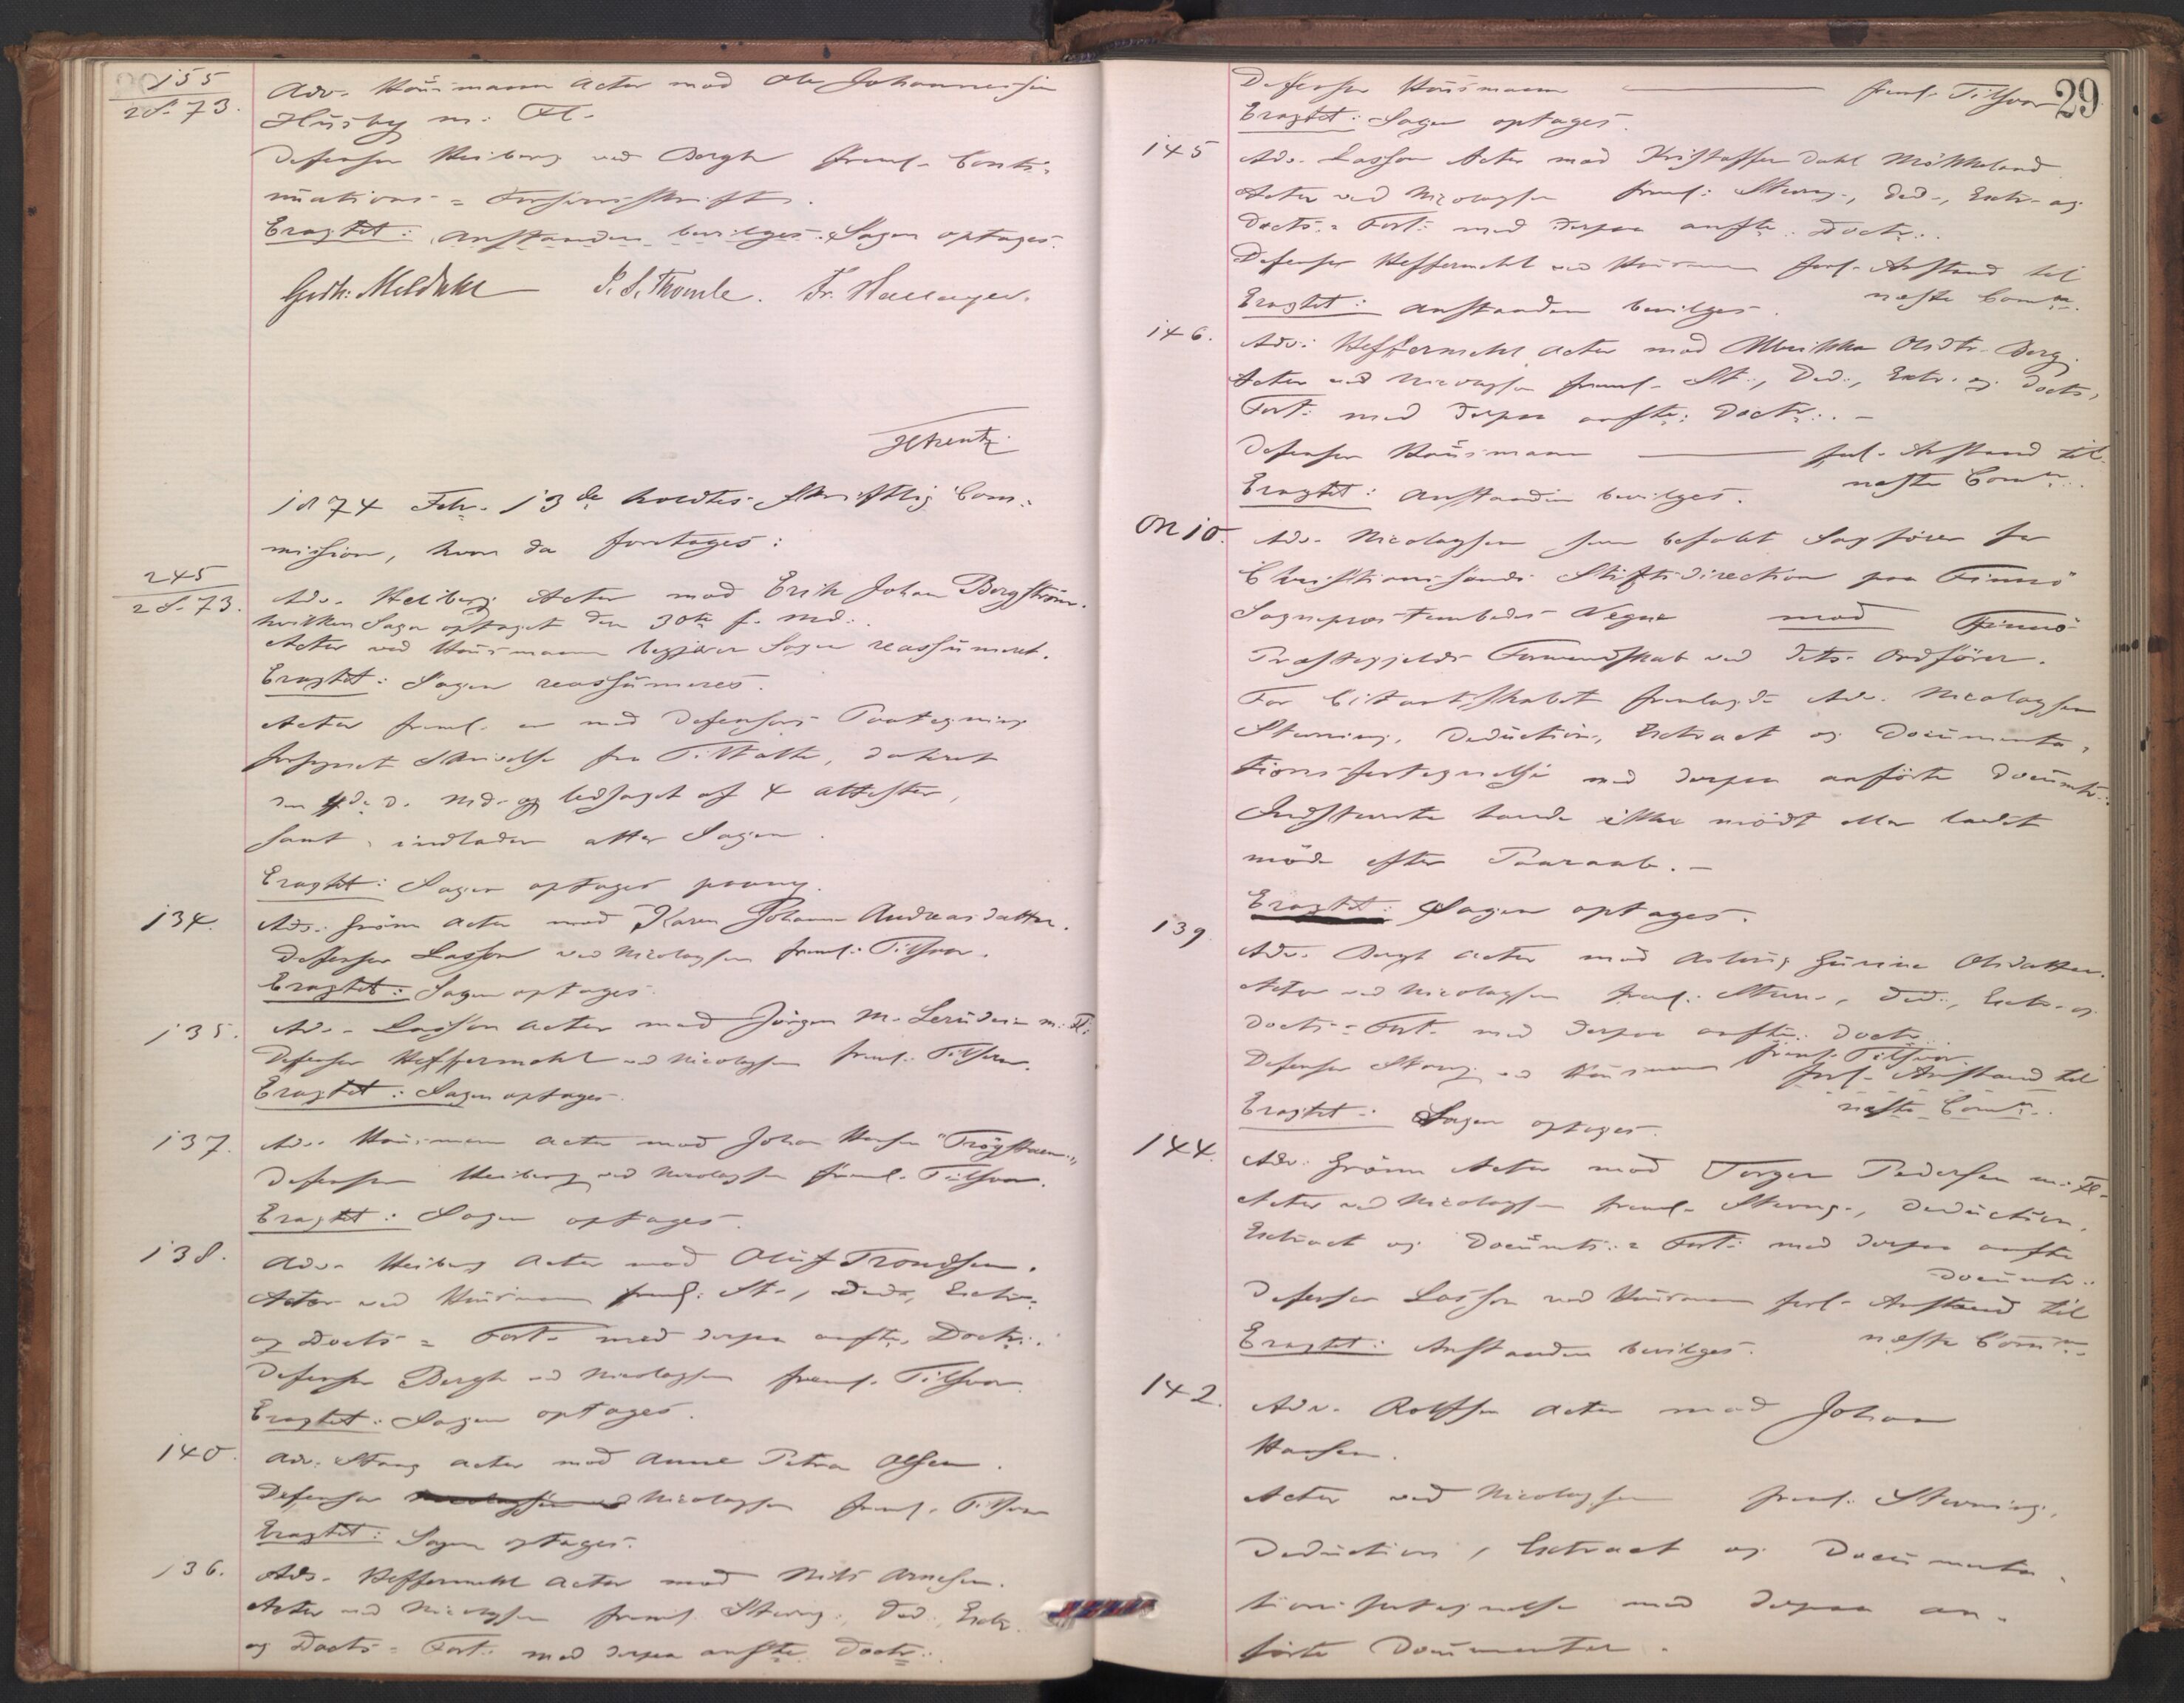 155
28-73.
Adv. Hausmann Actor mod Ole Johannessen
Husby m. Fl.
Defensor Heiberg ved Bergh freml. Conti-
nuations = Forsvarsskrift.
Eragtet: Anstanden bevilges. Sagen optages.
P. S. Thomle.
1874 Febr. 13de holdtes Skriftlig Com-
mission, hvor da foretages:
245
28-73.
Adv. Heiberg Actor mod Erik Johan Bergström.
hvilken Sagen optaget den 30te f. Md.
Actor ved Hausmann begjærer Sagen reassumeret.
Eragtet: Sagen reassumeres.
Actor freml. en med Defensors Paategning
forsynet Skrivelse fra Tiltalte, dateret
den 4de d. Md. og ledsaget af 4 Attester,
samt indlader atter Sagen.
Eragtet: Sagen optages paany.
134.
Adv. Grönn Actor mod Karen Johanne Andreasdatter.
Defensor Lasson ved Nicolaysen freml. Tilsvar.
Eragtet: Sagen optages.
135.
Adv. Lasson Actor mod Jörgen M. m. Fl.
Defensor Heffermehl ved Nicolaysen freml. Tilsvar.
Eragtet: Sagen optages.
137.
Adv. Hausmann Actor mod Johan Hansen "Trögstaen".
Defensor Heiberg ved Nicolaysen freml. Tilsvar.
Eragtet: Sagen optages.
138.
Adv. Heiberg Actor mod Oluf Trondsen.
Actor ved Hausmann freml. St., Ded., Extr.
og Docts = Fort. med derpaa anfte. Doctr.
Defensor Bergh ved Nicolaysen freml. Tilsvar.
Eragtet: Sagen optages.
140.
Adv. Stang Actor mod Anne Petra Olsen.
Defensor Nicolaysen freml. Tilsvar
Eragtet: Sagen optages.
136.
Adv. Heffermehl Actor mod Nils Arnesen.
Actor ved Nicolaysen freml. Stevng., Ded., Extr.
og Docts = Fort. med derpaa anfte Doctr.
29
Defensor Hausmann — freml. Tilsvar
Eragtet: Sagen optages.
145
Adv. Lasson Actor mod Kristoffer Dahl Mökkeland.
Actor ved Nicolaysen freml. Stevng., Ded., Extr. og
Docts. = Fort. med derpaa anfte. Doctr.
Defensor Heffermehl ved Hausmann forl. Anstand til
næste Comn.
Eragtet: Anstanden bevilges.
146.
Adv. Heffermehl Actor mod Ulrikke Olsdtr. Berg.
Actor ved Nicolaysen freml. St., Ded., Extr. og Docts,
Fort. med derpaa anfte. Doctr. —
Defensor Hausmann — forl. Anstand til
næste Comn.
Eragtet: Anstanden bevilges.
No 10.
Adv. Nicolaysen som befalet Sagförer for
Christianssands Stiftsdirection paa Finnö
Sognepræstembeds Vegne mod Finnö
Præstegjelds Formandskab ved dets Ordförer.
For Citantskabet fremlagde Adv. Nicolaysen
Stevning, Deduction, Extract og Documenta-
tionsfortegnelse med derpaa anförte Documtr.
Indstevnte havde ikke mödt eller ladet
möde efter Paaraab. —
Eragtet: Sagen optages.
139
Adv. Bergh Actor mod Aslaug Gurine Olsdatter.
Actor ved Nicolaysen freml. Stevn., Ded., Extr. og
Docts = Fort. med derpaa anfte. Doctr.
Defensor Stang ved Hausmann freml. Tilsvar
forl. Anstand til
næste Comn.
Eragtet: Sagen optages.
144.
Adv. Grönn Actor mod Torger Pedersen m. Fl.
Actor ved Nicolaysen freml. Stevng., Deduction,
Extract og Documts. = Fort. med derpaa anfte
Documtr.
Defensor Lasson ved Hausmann forl. Anstand til
næste Comn.
Eragtet: Anstanden bevilges.
142.
Adv. Rolfsen Actor mod Johan
Hansen.
Actor ved Nicolaysen freml. Stevning,
Deduction, Extract og Documenta-
tionsfortegnelse med derpaa an-
förte Documenter.